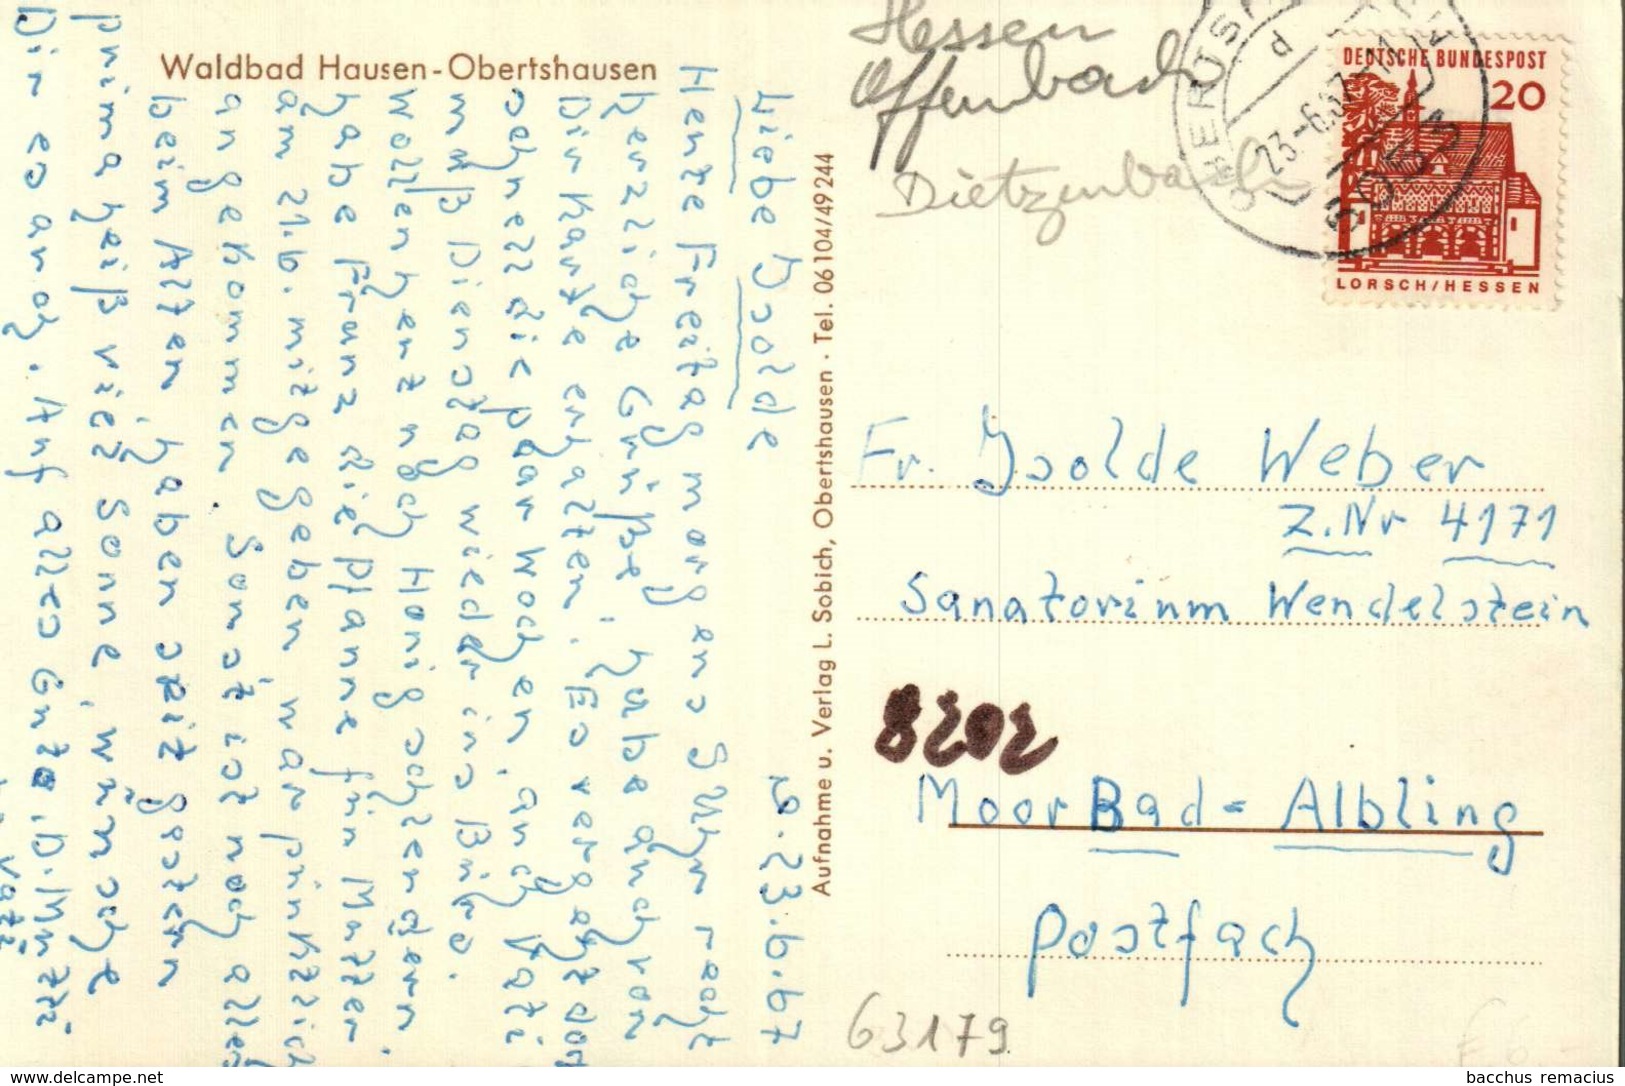 Waldbad Hausen-Obertshausen
Liebe Isolde 23.6.67
Heute Freitag morgens 5 Uhr recht
herzliche Grüße, habe auch von
Dir Karte erhalten. Es vergeht doch
schnell die paar Wochen, auch Vati
muß Dienstag wieder ins Büro.
wollen jetzt nach Honig schleudern.
habe Franz die Pfanne für Mutter
am 21.6. mitgegeben war pünktlich
angekommen. Sonst ist noch alles
beim Alten haben seit gestern
prima heiß viel Sonne, wünsche
Dir es auch. Auf alles Gute. D. Mutti
u. Vati
Aufnahme u. Verlag L. Sobich, Obertshausen · Tel. 06104/49244
Hessen
Offenbach
Dietzenbach
23.-6.67
6053
DEUTSCHE BUNDESPOST
20
LORSCH/HESSEN
Fr. Isolde Weber
Z.Nr 4171
Sanatorium Wendelstein
8202
Moor Bad= Aibling
Postfach
63179
www.delcampe.net
bacchus remacius